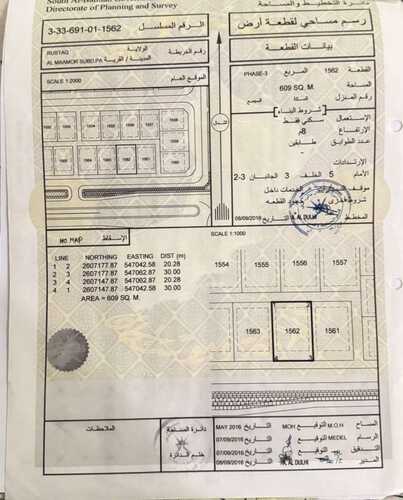 South Al-Batinah
Directorate of Planning and Survey
دائرة التخطيط و المساحة
3-33-691-01-1562
الرقم المسلسل
رسم مساحي لقطعة أرض
RUSTAQ
الولاية
رقم الخريطة
AL MAAMOR SUBD.PA
المدينة / القرية
بيانات القطعة
SCALE 1:2000
الموقع العام
القطعة 1562 المربع PHASE-3
المساحة 609 SQ. M.
رقم المنزل
المجمع
شروط البناء
الإستعمال سكني فقط
الإرتفاع 8م
عدد الطوابق طابقين
الإرتدادات
الأمام 5 الخلف 3 الجانبان 3-2
1562
1561
موقف
داخل
القطعه
المخطط
A. AL DULHI
التاريخ 08/09/2016
شمال
SCALE 1:1000
NO MAP
الإسقاط
LINE NORTHING EASTING DIST (m)
1 2 2607177.87 547042.58 20.28
2 3 2607177.87 547062.87 30.00
3 4 2607147.87 547062.87 20.28
4 1 2607147.87 547042.58 30.00
AREA = 609 SQ. M.
1554
1555
1556
1557
1563
1562
1561
الملاحظات
دائرة المساحة
ختم الدائرة
المساح M.O.H التوقيع MOH التاريخ MAY 2016
الرسام MEDEL التوقيع التاريخ 07/09/2016
التدقيق التوقيع التاريخ 07/09/2016
المدير A. AL DULHI التاريخ 08/09/2016